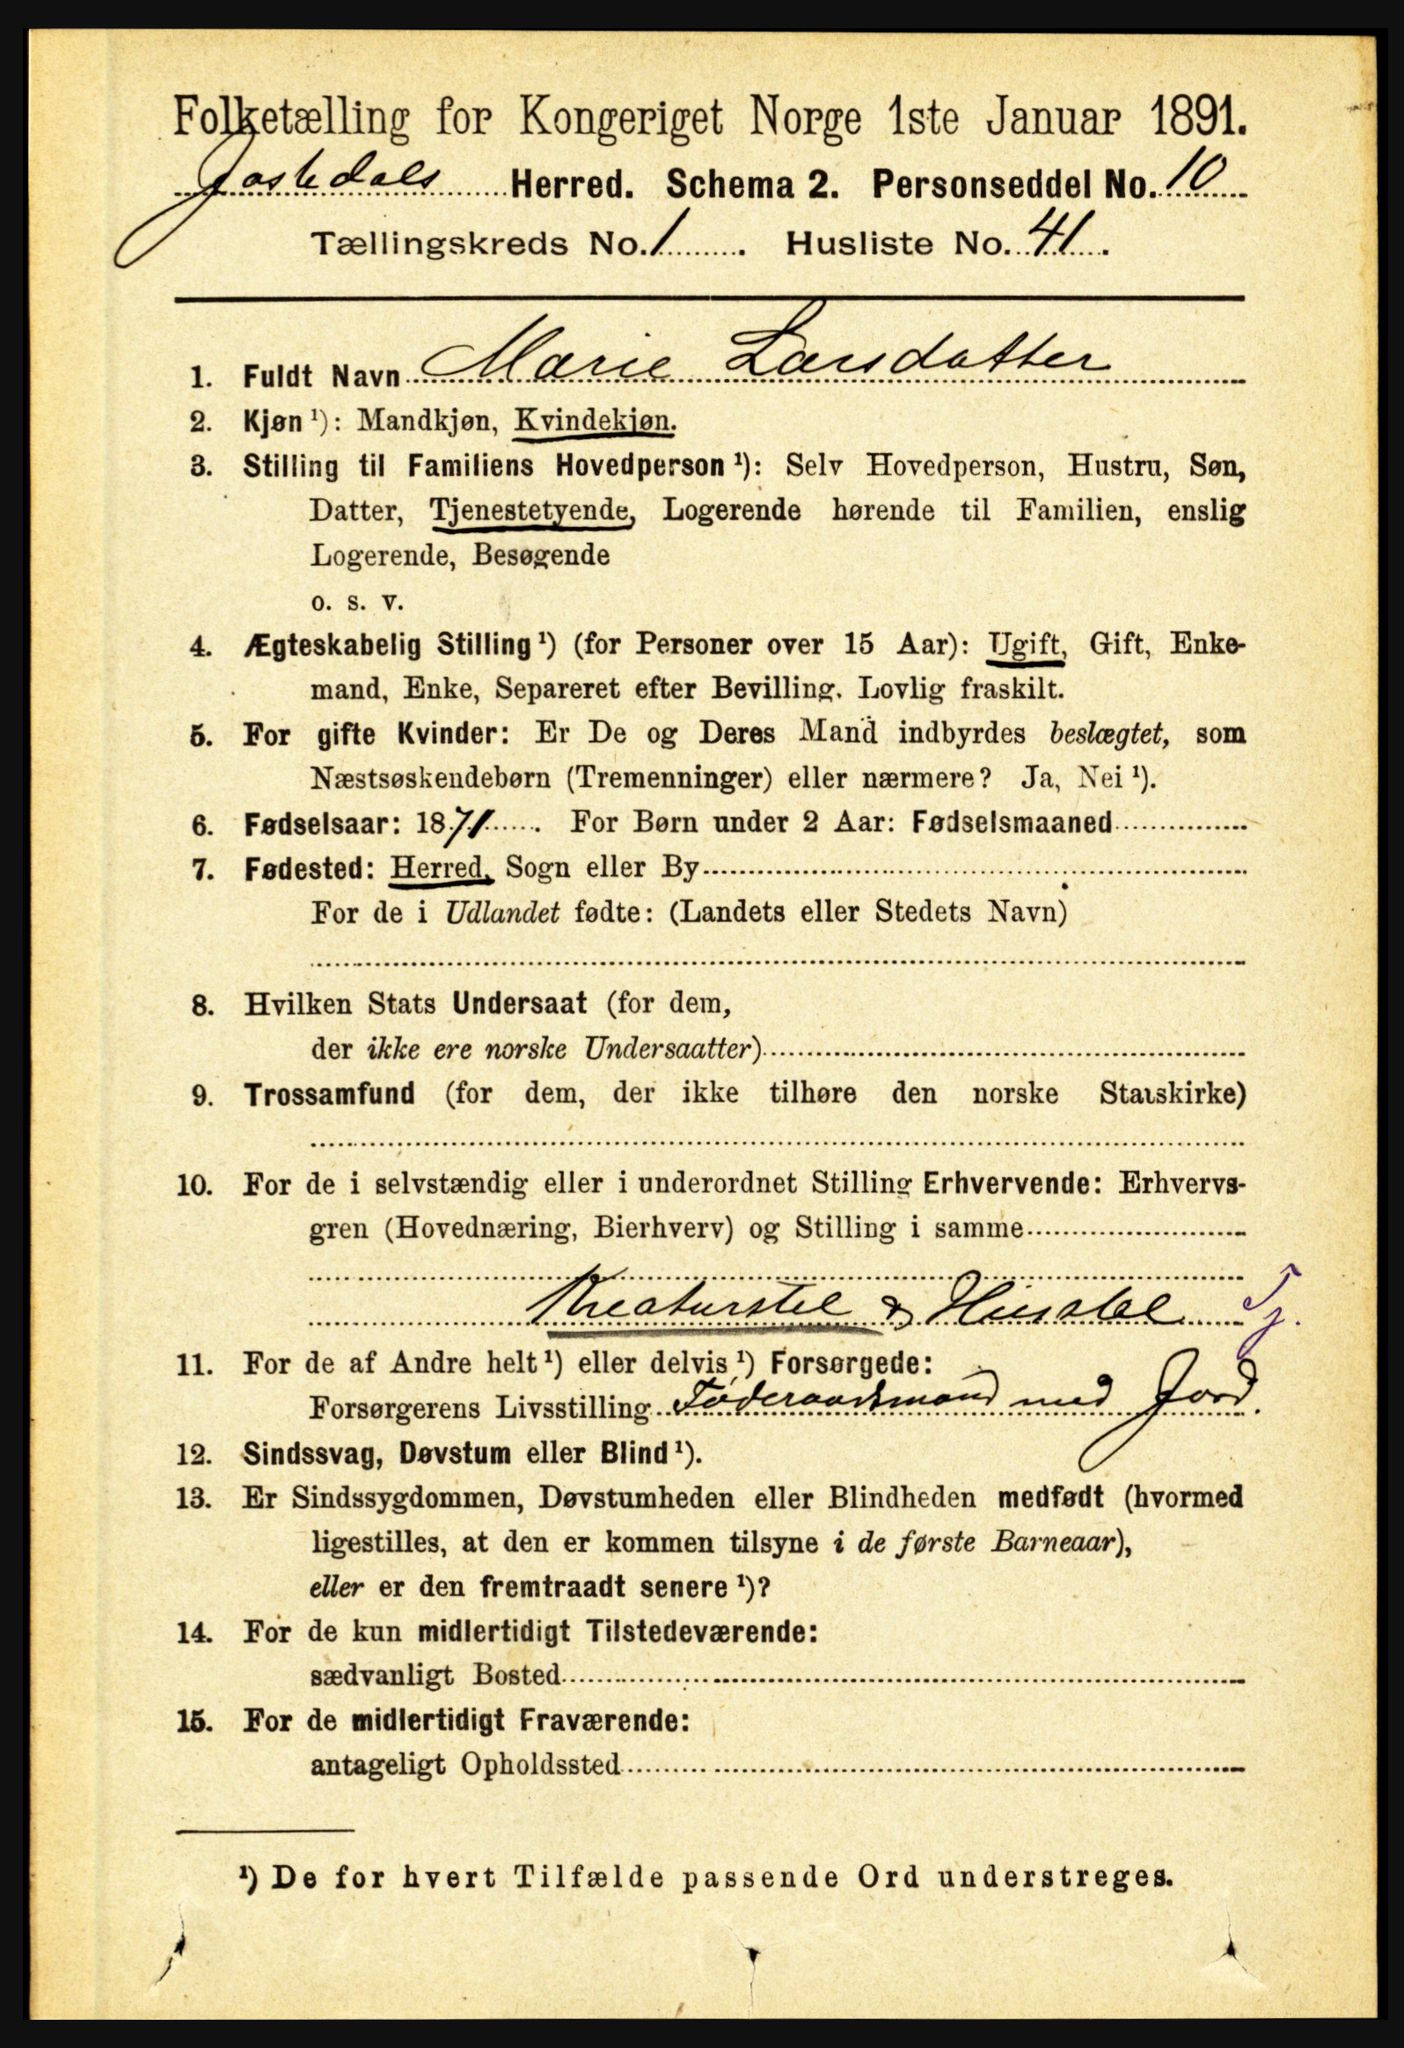 Folketælling for Kongeriget Norge 1ste Januar 1891.
Jostedals Herred. Schema 2. Personseddel No. 10
Tællingskreds No. 1. Husliste No. 41.
1. Fuldt Navn Marie Larsdatter
2. Kjøn ¹): Mandkjøn, Kvindekjøn.
3. Stilling til Familiens Hovedperson ¹): Selv Hovedperson, Hustru, Søn,
Datter, Tjenestetyende, Logerende hørende til Familien, enslig
Logerende, Besøgende
o. s. v.
4. Ægteskabelig Stilling ¹) (for Personer over 15 Aar): Ugift, Gift, Enke-
mand, Enke, Separeret efter Bevilling. Lovlig fraskilt.
5. For gifte Kvinder: Er De og Deres Mand indbyrdes beslægtet, som
Næstsøskendebørn (Tremenninger) eller nærmere? Ja, Nei ¹).
6. Fødselsaar: 1871. For Børn under 2 Aar: Fødselsmaaned
7. Fødested: Herred, Sogn eller By
For de i Udlandet fødte: (Landets eller Stedets Navn)
8. Hvilken Stats Undersaat (for dem,
der ikke ere norske Undersaatter)
9. Trossamfund (for dem, der ikke tilhøre den norske Statskirke)
10. For de i selvstændig eller i underordnet Stilling Erhvervende: Erhvervs-
gren (Hovednæring, Bierhverv) og Stilling i samme
Kreaturstel & Husstel Tj.
11. For de af Andre helt ¹) eller delvis ¹) Forsørgede:
Forsørgerens Livsstilling Føderaadsmand med Jord.
12. Sindssvag, Døvstum eller Blind ¹).
13. Er Sindssygdommen, Døvstumheden eller Blindheden medfødt (hvormed
ligestilles, at den er kommen tilsyne i de første Barneaar),
eller er den fremtraadt senere ¹)?
14. For de kun midlertidigt Tilstedeværende:
sædvanligt Bosted
15. For de midlertidigt Fraværende:
antageligt Opholdssted
¹) De for hvert Tilfælde passende Ord understreges.